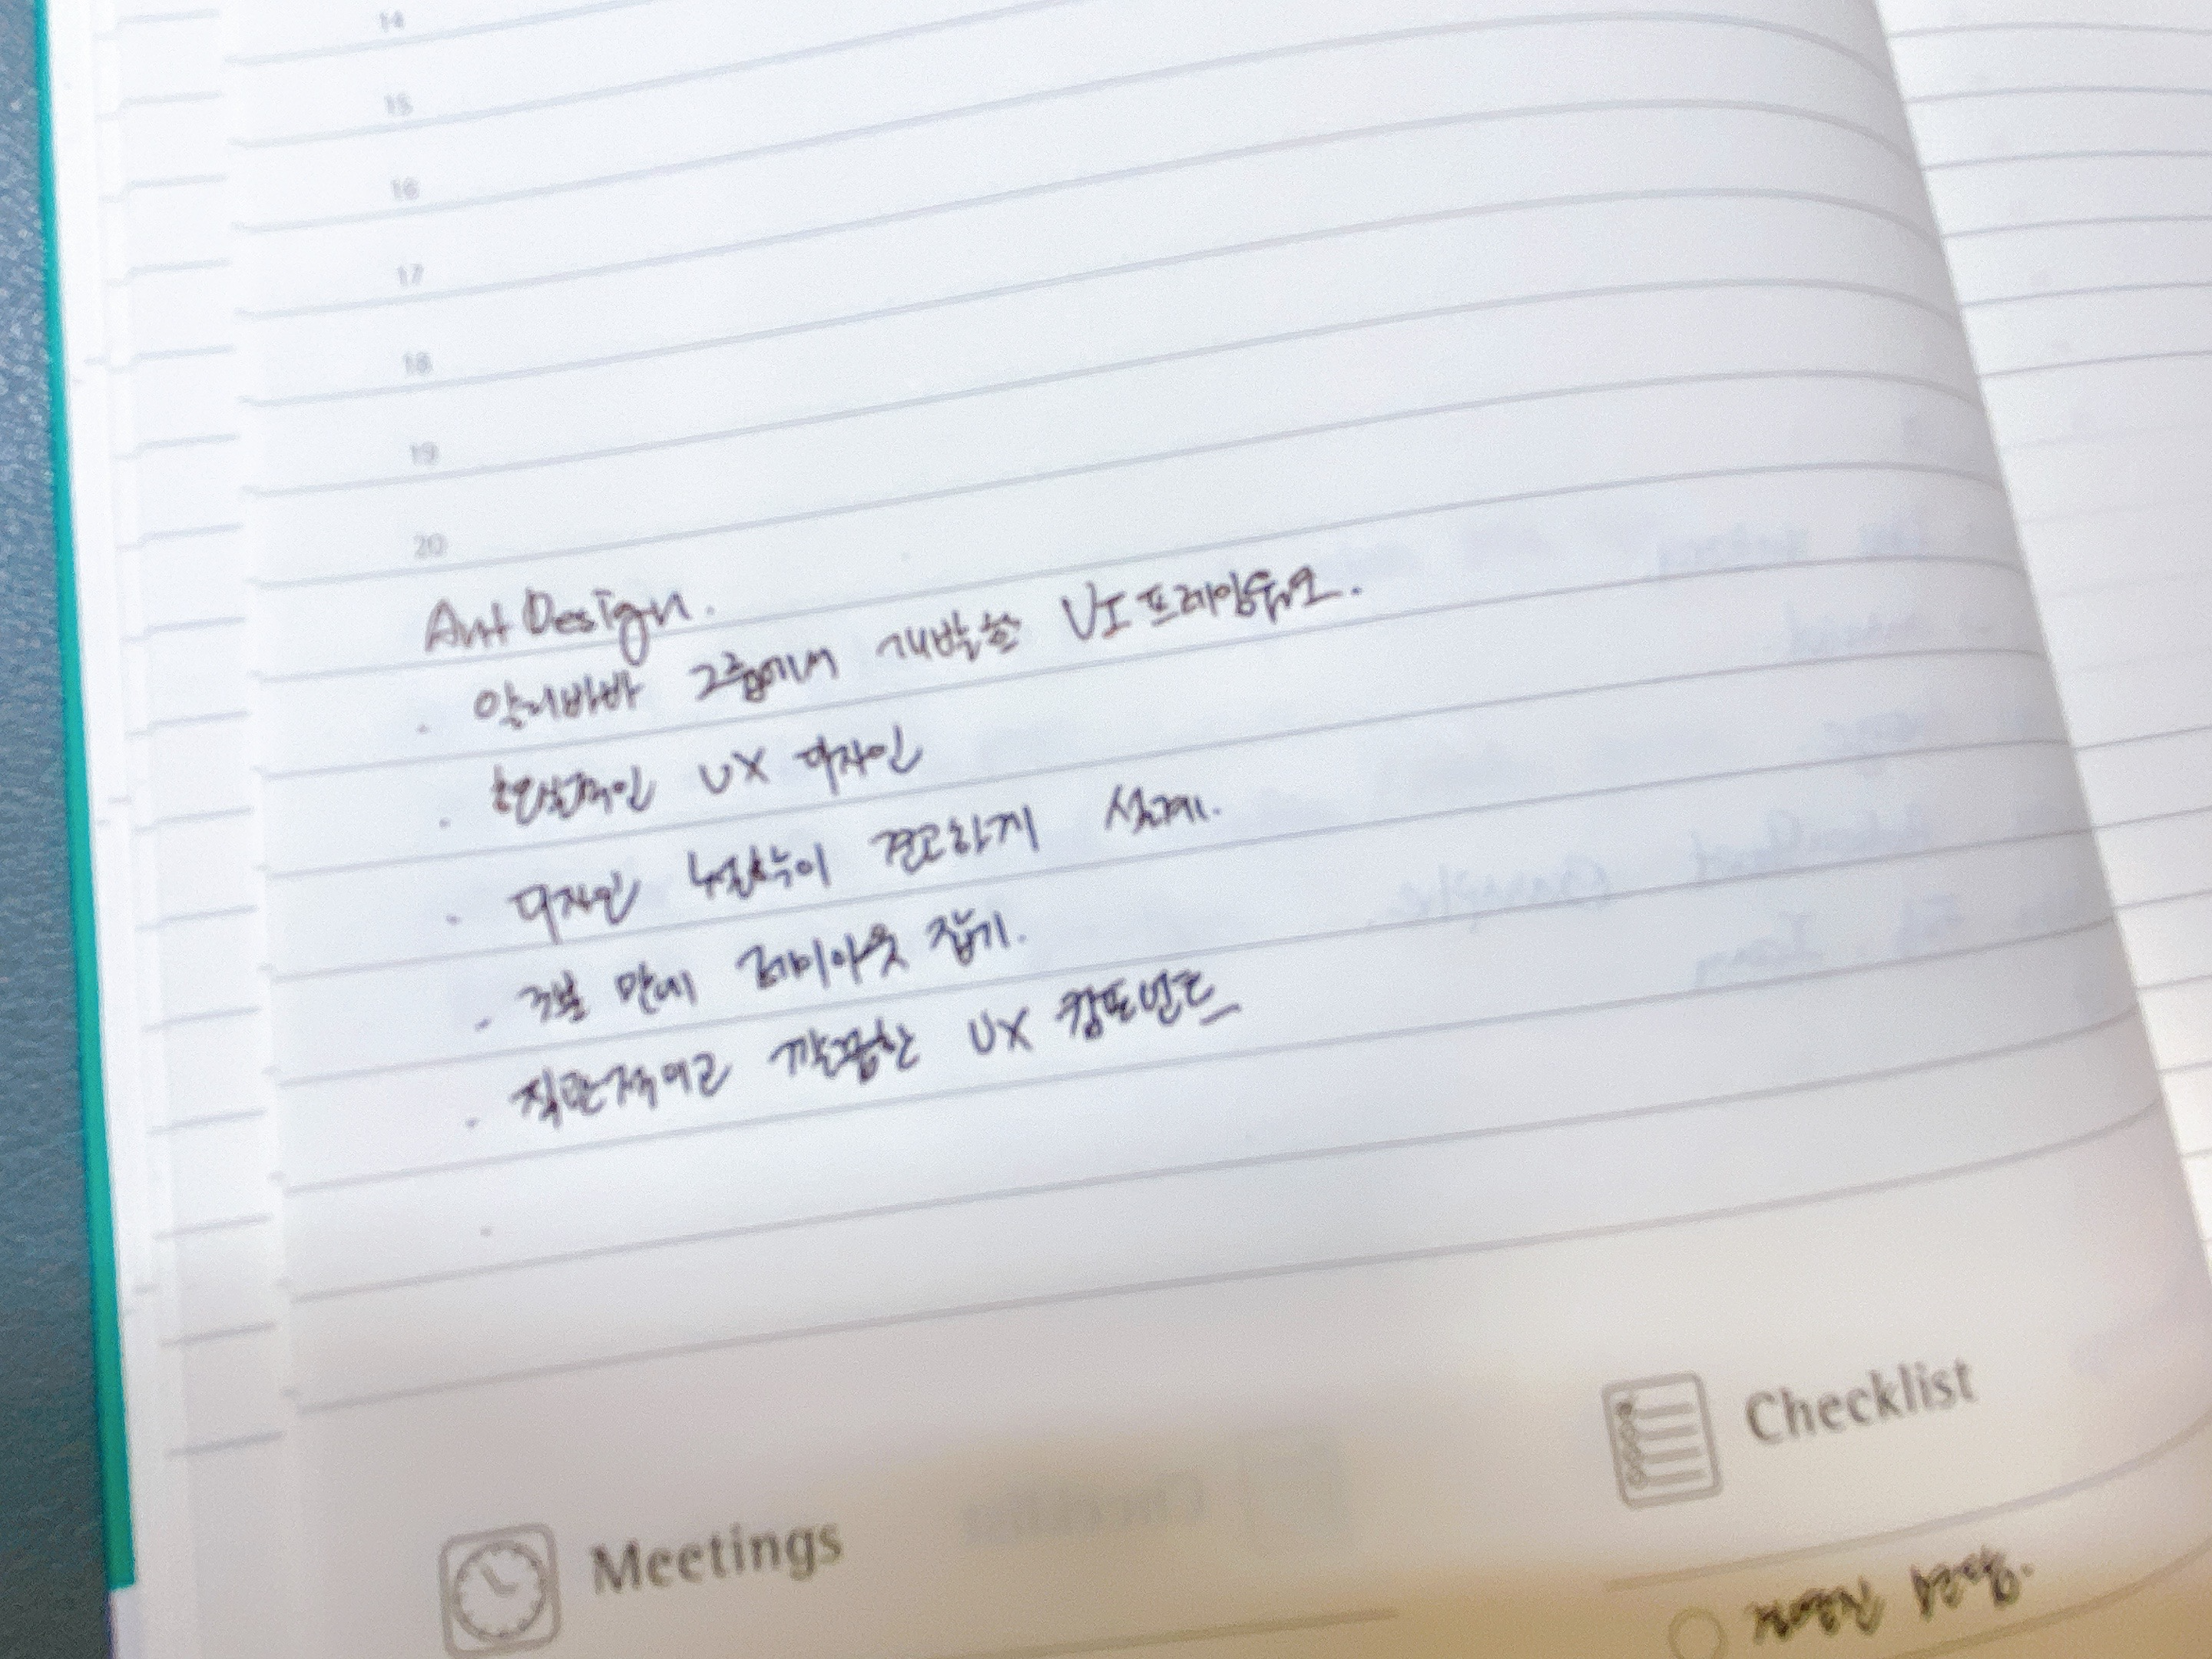 14
15
16
17
18
19
20
Ant Design.
· 알리바바 그룹에서 개발한 UI 프레임워크.
· 환상적인 UX 디자인
· 디자인 이 견고하게 설계.
· 3분 만에 레이아웃 잡기.
· 직관적이고 깔끔한 UX 컴포넌트
Meetings
Checklist